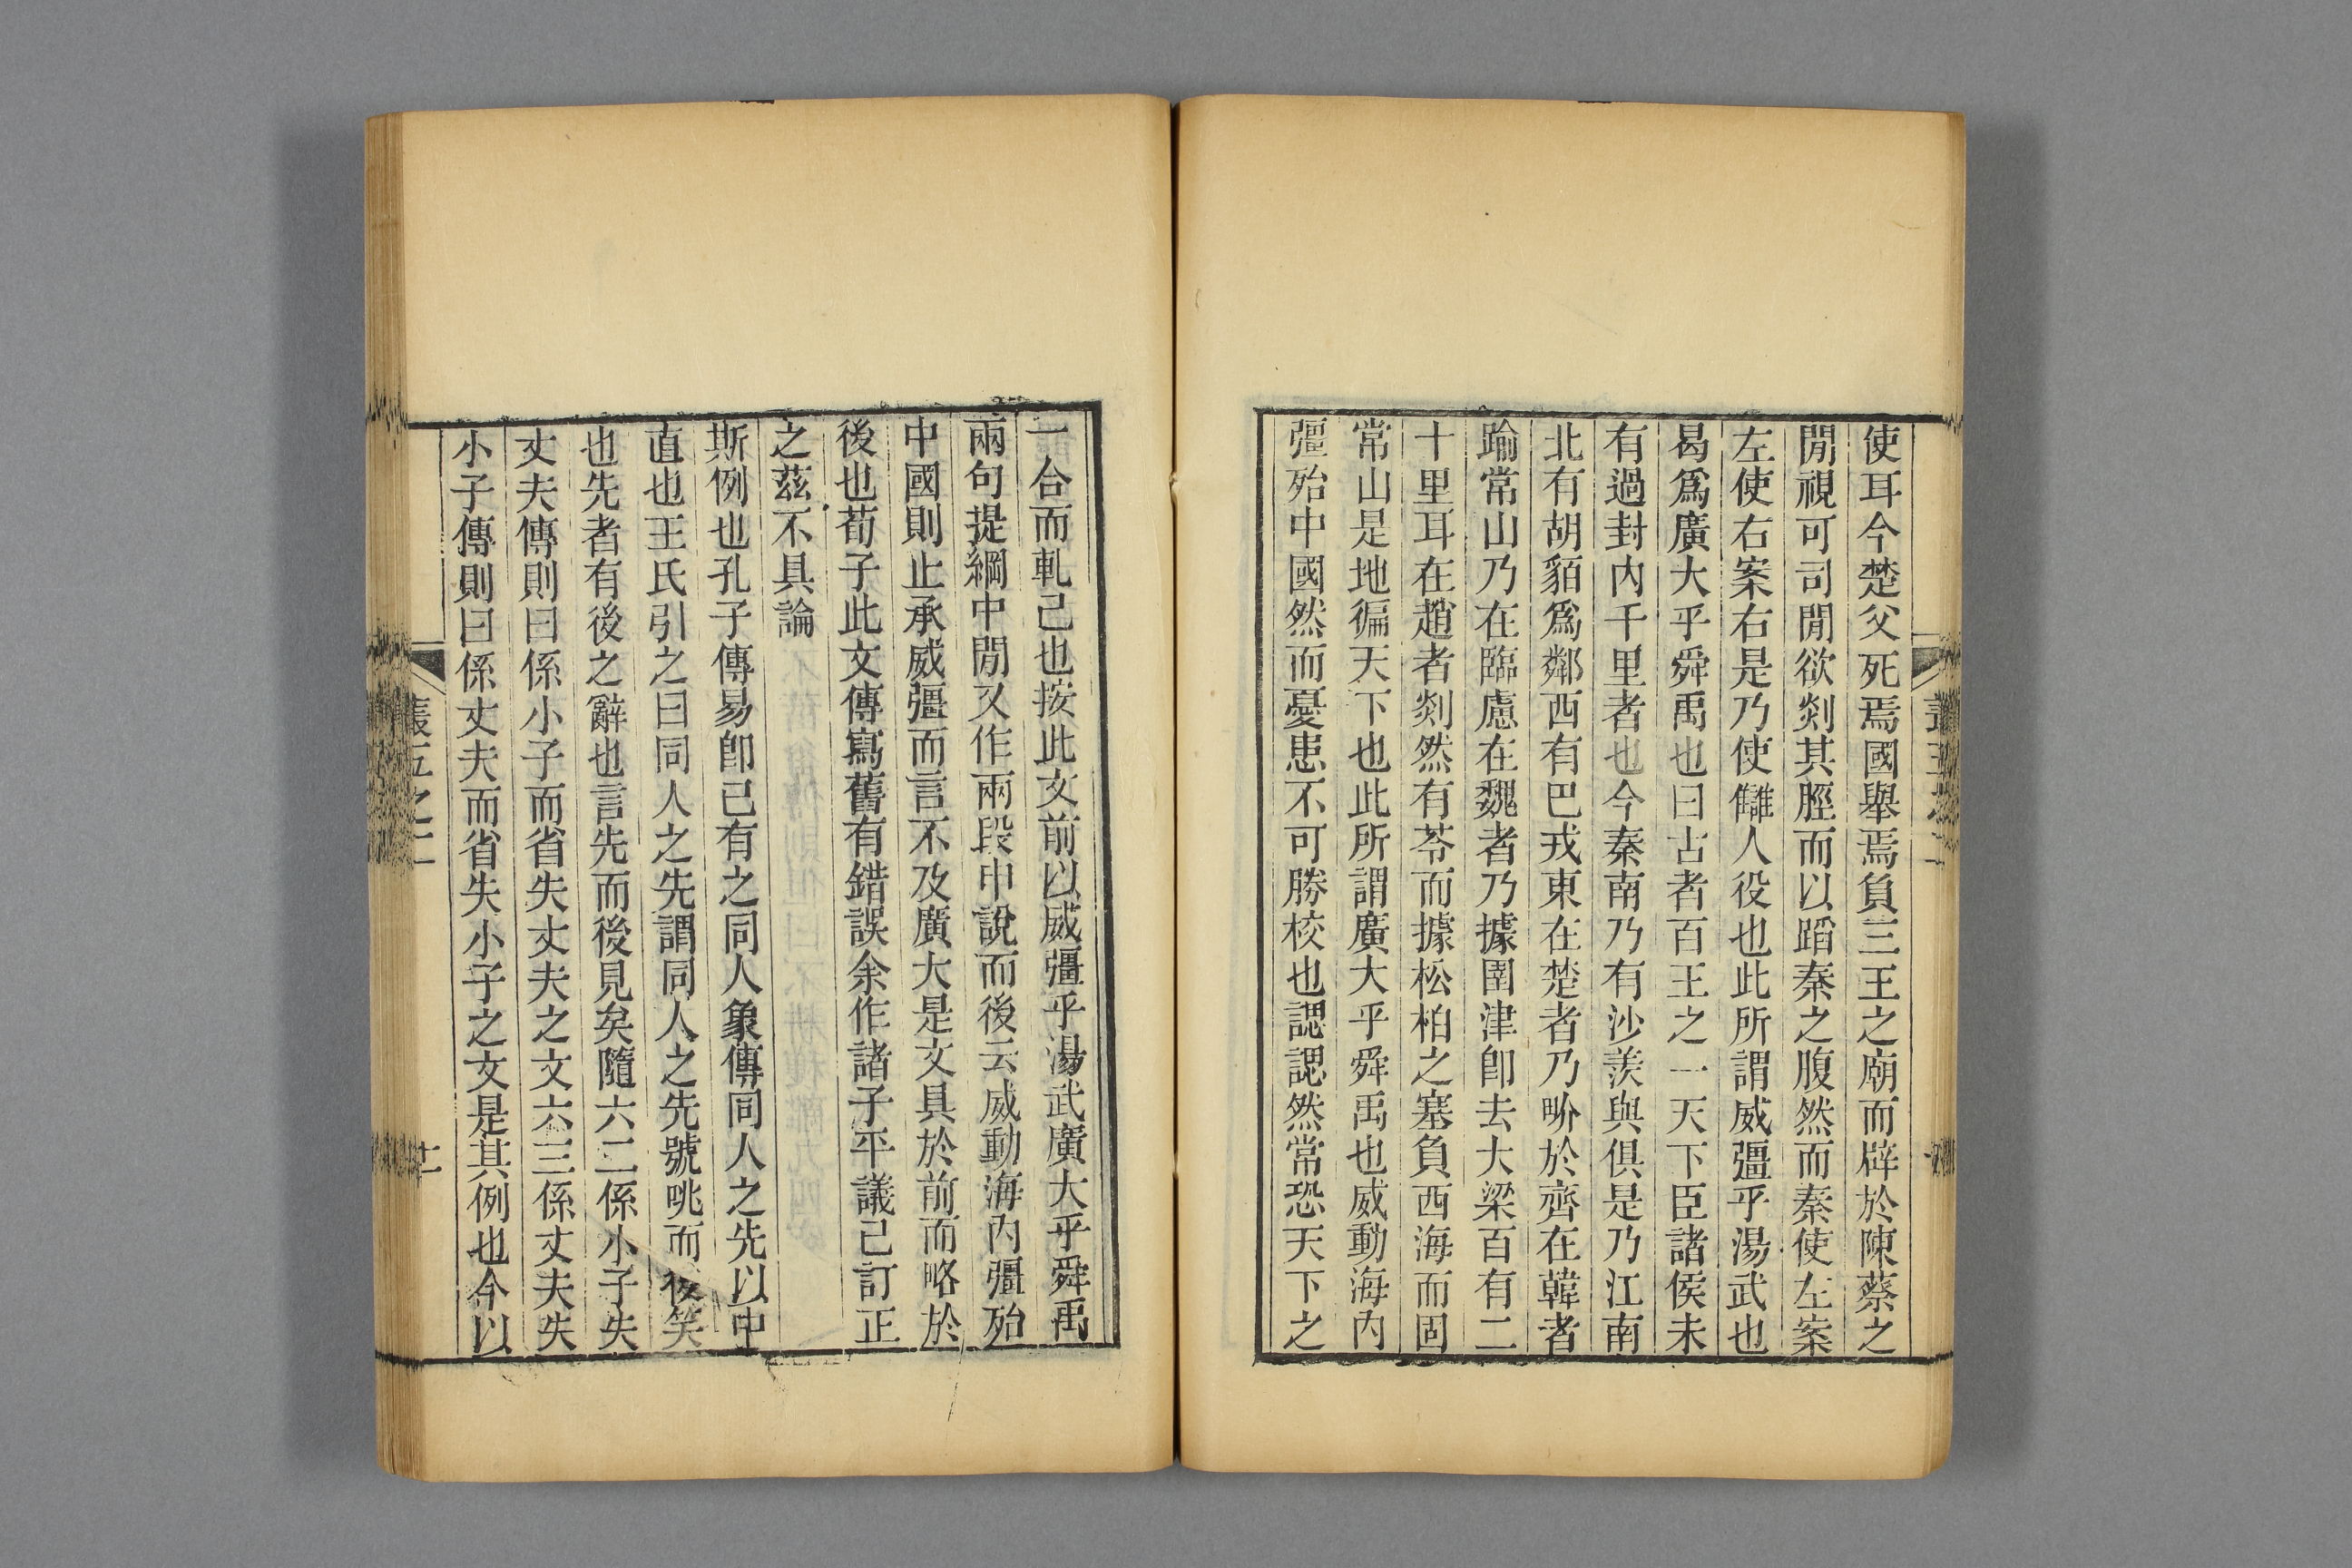 使耳今楚父死焉國舉焉負三王之廟而辟於陳蔡之
閒視可司閒欲剡其脛而以蹈秦之腹然而秦使左案
左使右案右是乃使讎人役也此所謂威彊乎湯武也
曷爲廣大乎舜禹也曰古者百王之一天下臣諸侯未
有過封內千里者也今秦南乃有沙羡與俱是乃江南
北有胡貊爲鄰西有巴戎東在楚者乃畍於齊在韓者
踰常山乃在臨慮在魏者乃據圉津卽去大梁百有二
十里耳在趙者剡然有苓而據松柏之塞負西海而固
常山是地徧天下也此所謂廣大乎舜禹也威動海內
彊殆中國然而憂患不可勝校也諰諰然常恐天下之
一合而軋己也按此文前以威彊乎湯武廣大乎舜禹
兩句提綱中閒又作兩段申說而後云威動海內彊殆
中國則止承威彊而言不及廣大是文具於前而略於
後也荀子此文傳寫舊有錯誤余作諸子平議已訂正
之茲不具論
斯例也孔子傳易卽已有之同人象傳同人之先以中
直也王氏引之曰同人之先謂同人之先號咷而後笑
也先者有後之辭也言先而後見矣隨六二係小子失
丈夫傳則曰係小子而省失丈夫之文六三係丈夫失
小子傳則曰係丈夫而省失小子之文是其例也今以
五之二